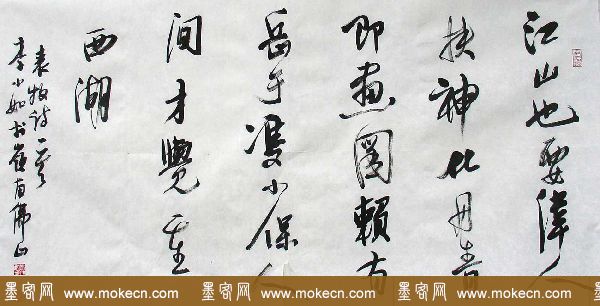 江山也要偉人
扶神化丹青
即畫圖賴有
岳于雙小保人
间才覺重
西湖
袁牧诗一首
李小如书岭南佛山
墨客网 www.mokecn.com 墨客网 www.mokecn.com 墨客网 www.mokecn.com